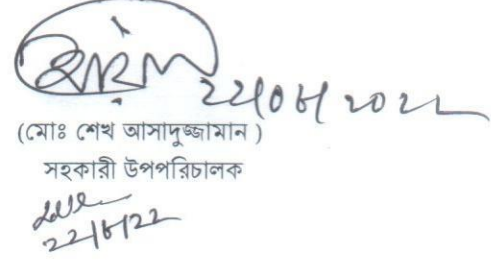 ২২/০৮/২০২২
(মোঃ শেখ আসাদুজ্জামান )
সহকারী উপপরিচালক
২২/৮/২২